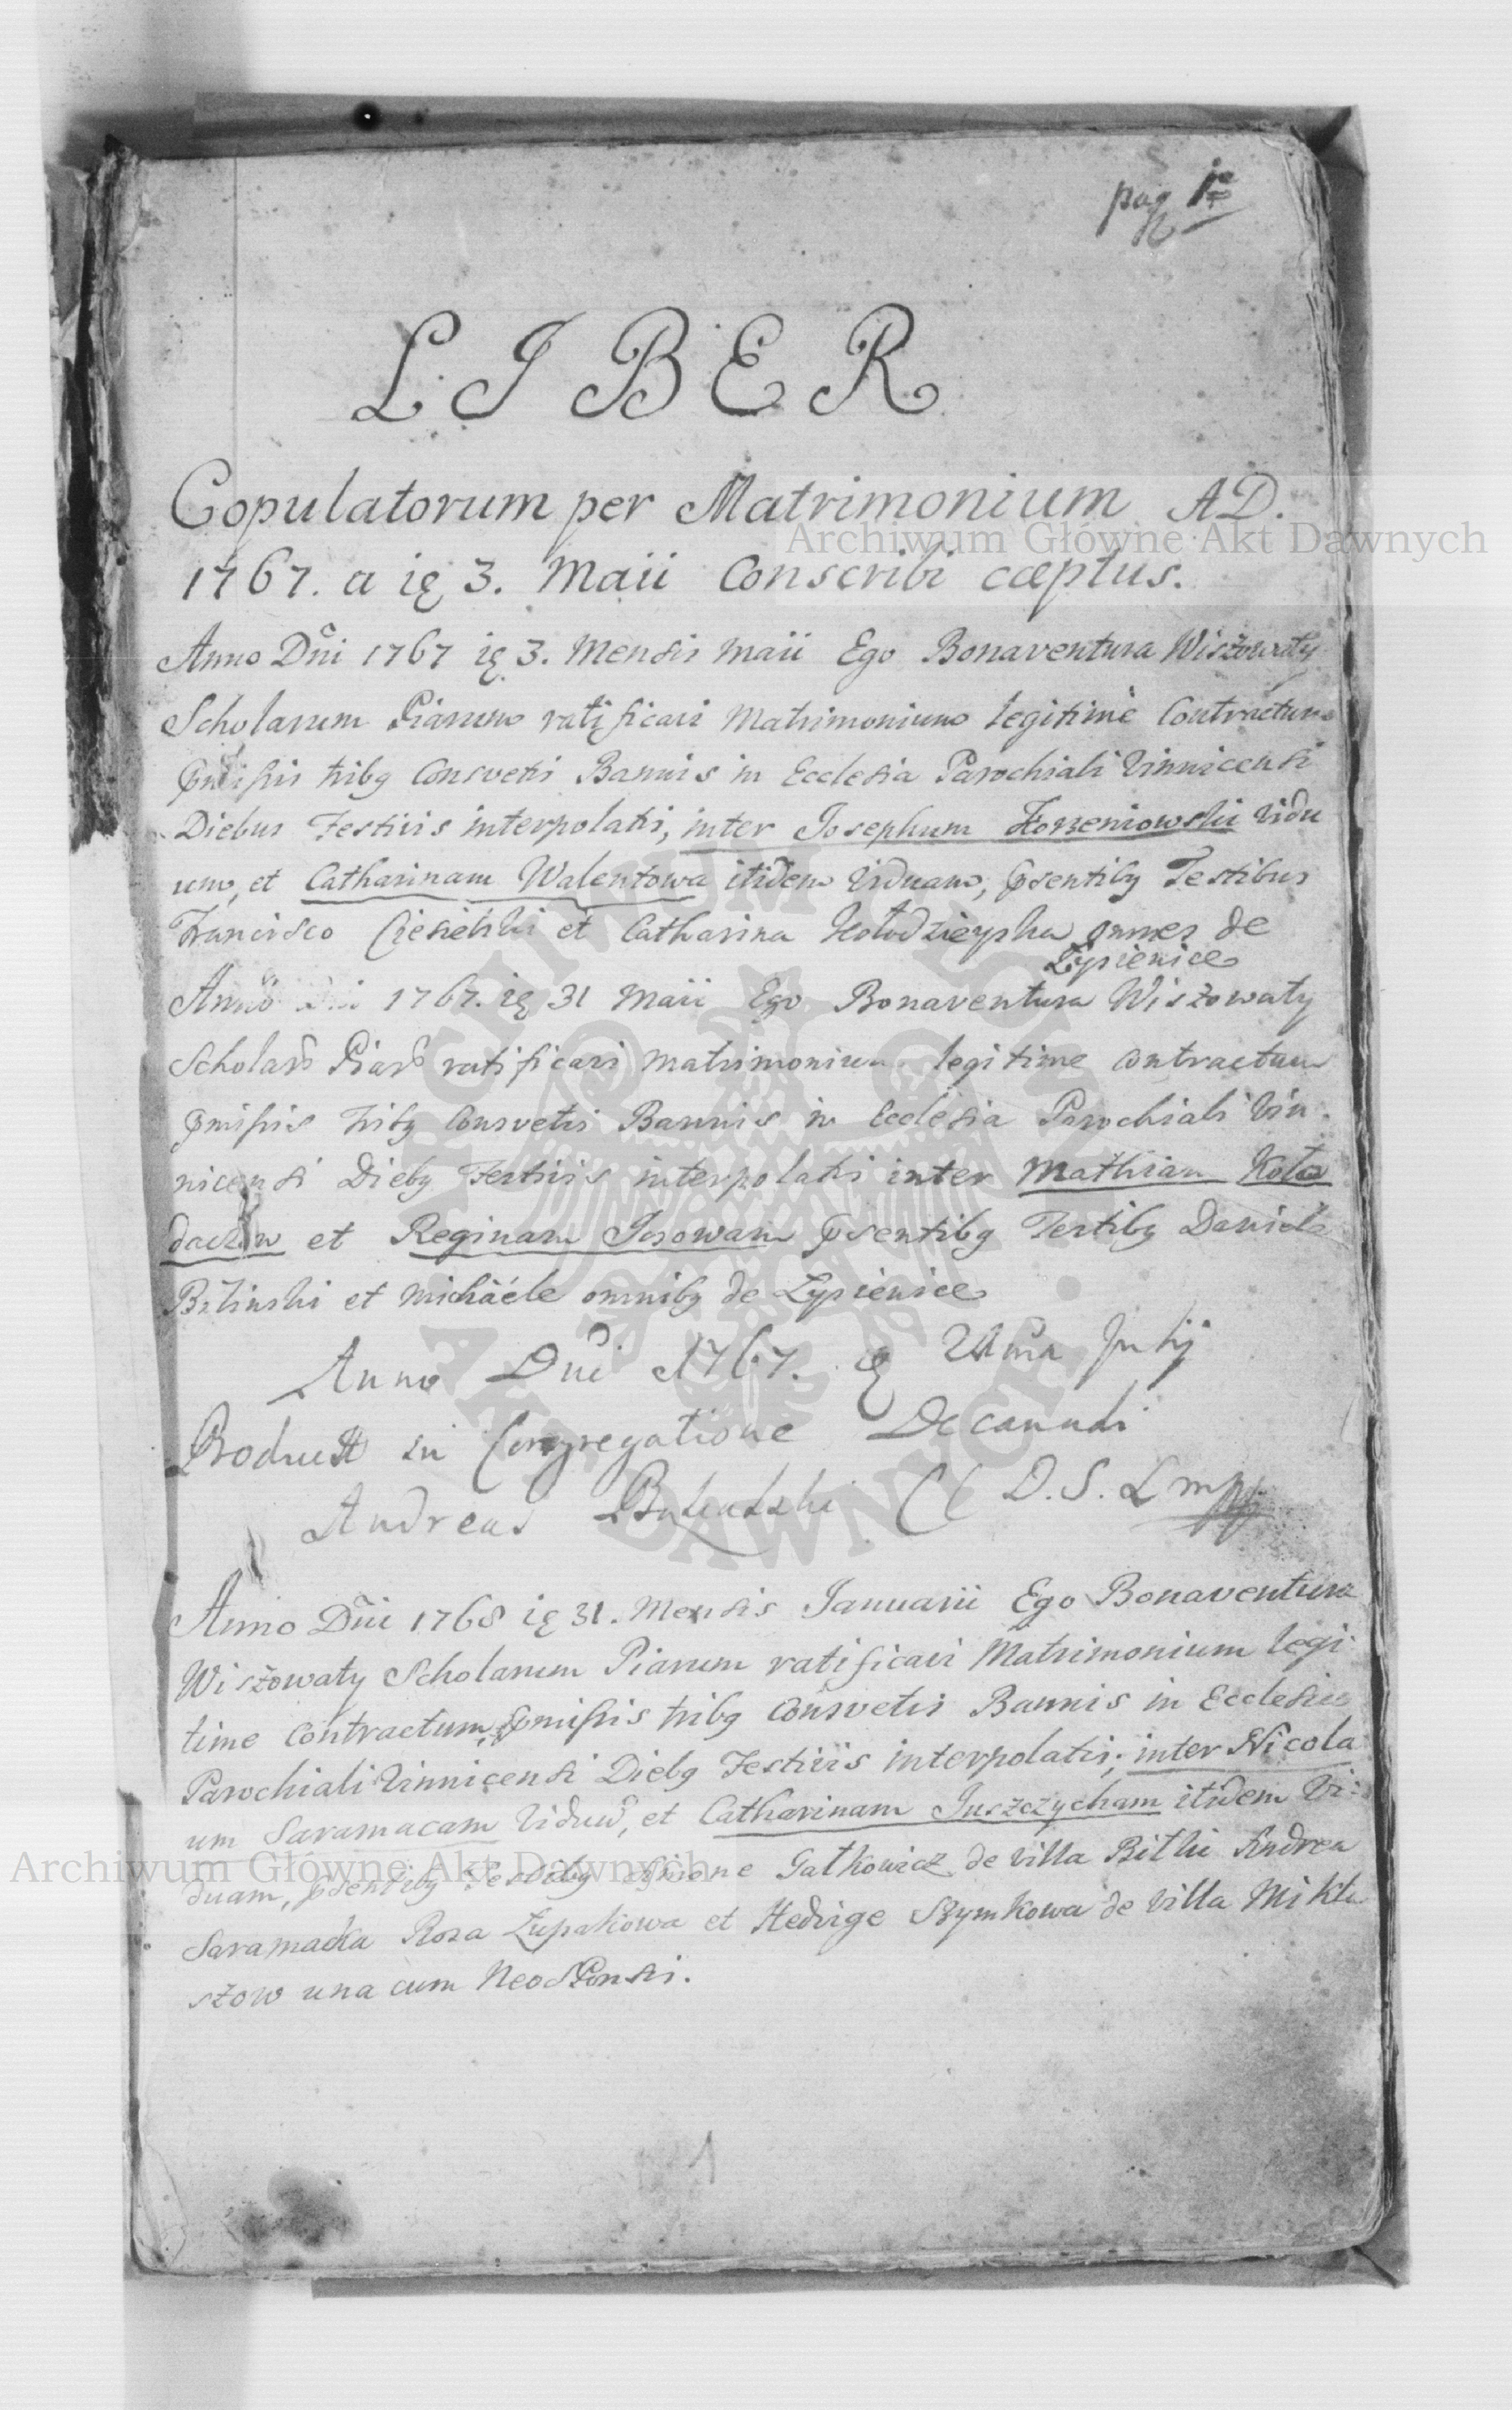 pag 1
LIBER
Copulatorum per Matrimonium AD.
Archiwum Główne Akt Dawnych
1767. a ię 3. Maii Conscribi cæptus.
Anno Dni 1767 ię 3. Mensis Maii Ego Bonaventura Wiszowaty
Scholarum Piarum ratificavi Matrimonium legitime Contractum
pmissis tribq Consvetis Bannis in Ecclesia Parochiali Vinnicensi
Diebus Festivis interpolatis, inter Josephum Korzeniowski Vidu
um, et Catharinam Walentowa itidem Viduam, psentibq Testibus
Francisco Ciesielski et Catharina Kołodzieyska omnes de
Łypienice
Anno Dni 1767. ię 31 Maii Ego Bonaventura Wiszowaty
Scholarũ Piarũ ratificavi Matrimonium legitime contractum
pmissis tribq Consvetis Bannis in Ecclesia Parochiali Vin
nicensi Diebq Festivis interpolatis inter Mathiam Koło
et Reginam psentibq Testibq Daniele
et Michaele omnibq de Łypienice
Anno Dni 1767.
in Congregatione Decanali
Andreas D. S. L mpp
Anno Dni 1768 ię 31. Mensis Januarii Ego Bonaventura
Wiszowaty Scholarum Piarum ratificavi Matrimonium legi
time Contractum, pmissis tribq Consvetis Bannis in Ecclesia
Parochiali Vinnicensi Diebq Festivis interpolatis; inter Nicola
um Saramacam Viduũ, et Catharinam Juszczycham itidem Vi:
duam, psentibq Testibq Gałkowicz de Villa Bilki Andrea
Archiwum Główne Akt Dawnych
Saramacka Roza Łupakowa et Hedvige Szymkowa de Villa Mikla
szow una cum NeoSponsis.
1
ARCHIWUM GŁÓWNE AKT DAWNYCH